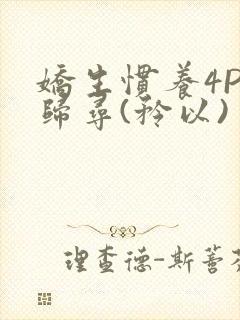 嬌生慣養4P
歸尋(矜以)
理查德-斯蒈